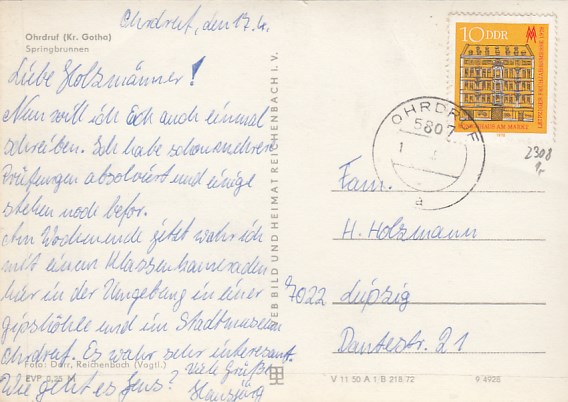 Ohrdruf, den 17.4.
Ohrdruf (Kr. Gotha)
Springbrunnen
Liebe Holzmänner!
Nun will ich Euch auch einmal
schreiben. Ich habe schon mehrere
Prüfungen absolviert und einige
stehen noch befor.
Am Wochenende jetzt wahr ich
mit einem Klassenkameraden
hier in der Umgebung in einer
gipshöhle und im Stadtmuseum
Ohrdruf. Es wahr sehr interesant.
Foto: Dörr, Reichenbach (Vogtl.)
Wie geht es Euns? Viele Grüße
EVP 0,25 M
Hansjörg
VEB BILD UND HEIMAT REICHENBACH I. V.
10 DDR
LEIPZIGER FRÜHJAHRSMESSE 1978
HAUS AM MARKT
OHRDRUF
5807
a
2308
Fam.
H. Holzmann
7022 Leipzig
Dantestr. 21
V 11 50 A 1 B 218 72
9 4928